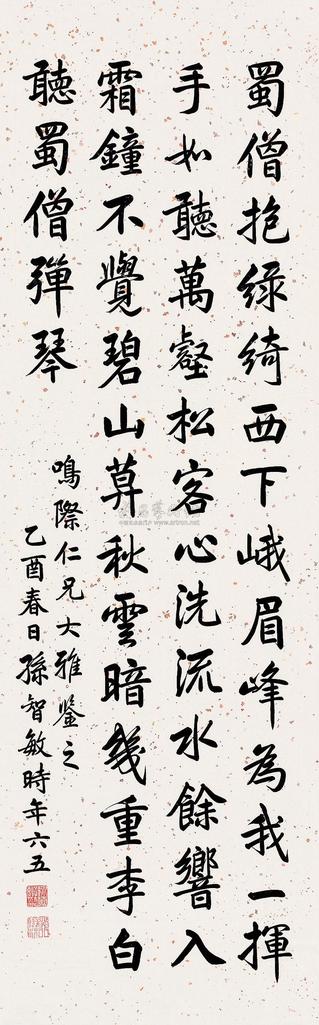 蜀僧抱綠綺西下峨眉峰為我一揮
手如聽萬壑松客心洗流水餘響入
霜鐘不覺碧山暮秋雲暗幾重李白
聽蜀僧彈琴
鳴際仁兄大雅鑒之
乙酉春日孫智敏時年六五